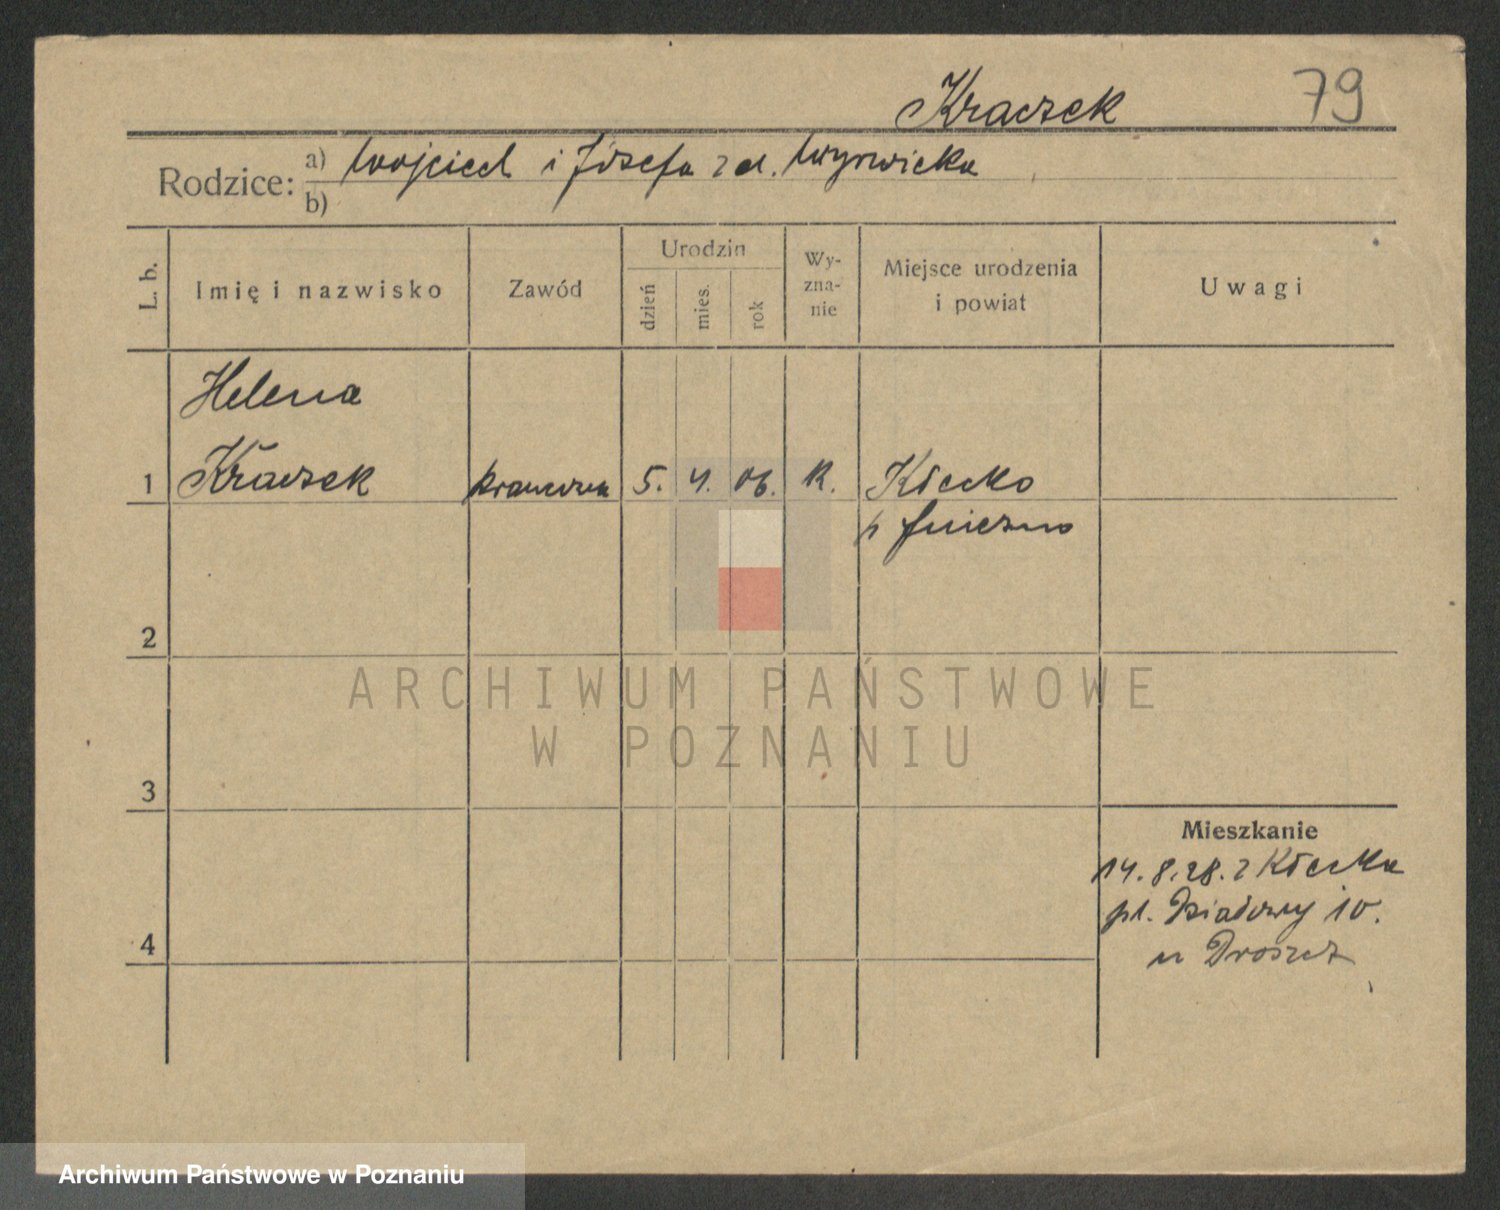 Kraczek 79
Rodzice: a) Wojciech i Józefa z d. Wyrwicka
b)
L. b. Imię i nazwisko Zawód Urodzin dzień mies. rok Wy-zna-nie Miejsce urodzenia i powiat Uwagi
Helena
1 Kraczek krawcowa 5. 4. 06. R. Kłecko
p Gniezno
2
ARCHIWUM PAŃSTWOWE
W POZNANIU
3
Mieszkanie
14.8.28. z Kłecka
pl. Działowy 10.
4
u
Archiwum Państwowe w Poznaniu